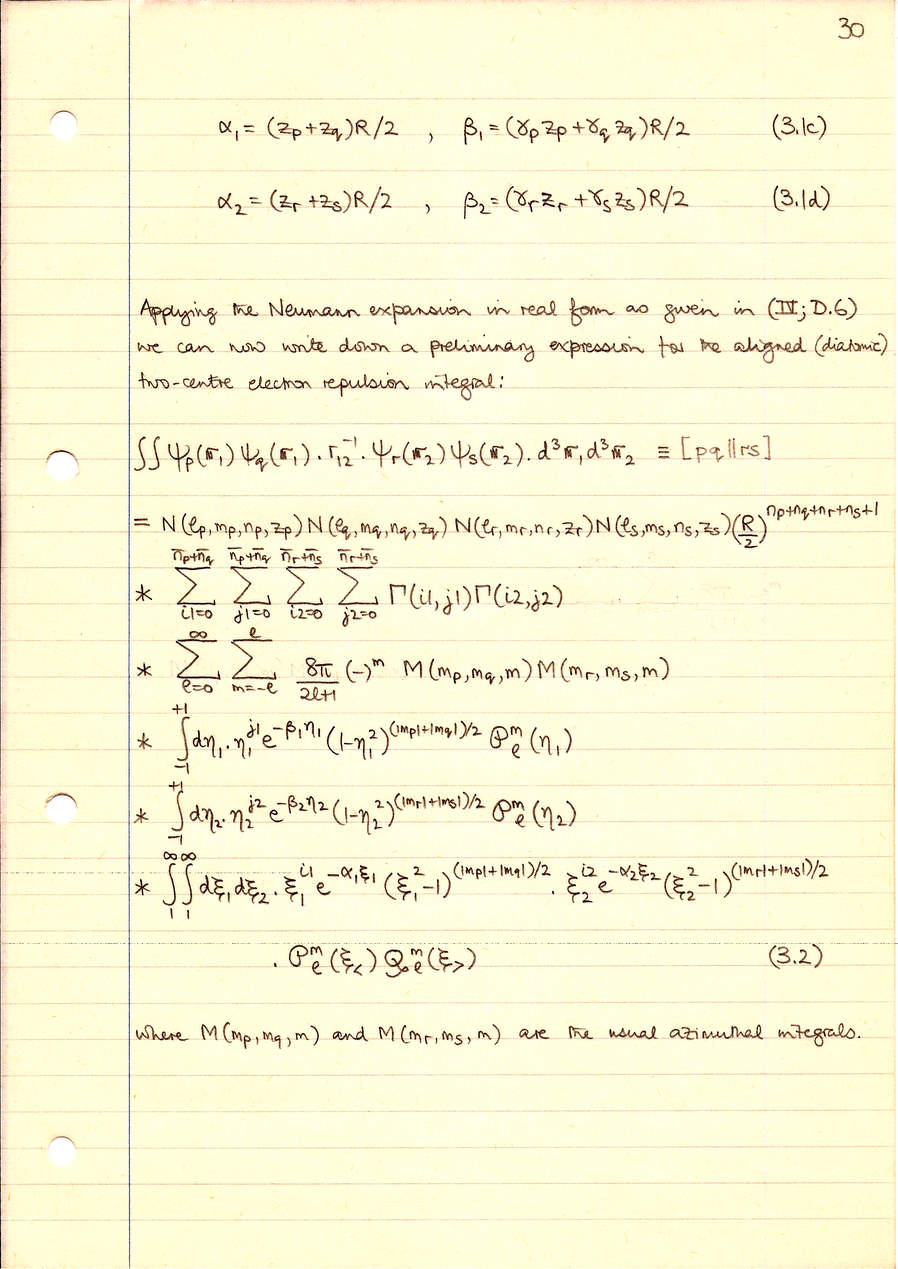 30
α₁ = (zp + zq)R/2 , β₁ = (γp zp + γq zq)R/2 (3.1c)
α₂ = (zr + zs)R/2 , β₂ = (γr zr + γs zs)R/2 (3.1d)
Applying the Neumann expansion in real form as given in (IV; D.6)
we can now write down a preliminary expression for the aligned (diatomic)
two-centre electron repulsion integral:
∫∫ ψp(r₁) ψq(r₁) . r₁₂⁻¹ . ψr(r₂) ψs(r₂) . d³r₁ d³r₂ ≡ [pq||rs]
= N(ℓp,mp,np,zp) N(ℓq,mq,nq,zq) N(ℓr,mr,nr,zr) N(ℓs,ms,ns,zs) (R/2)^{np+nq+nr+ns+1}
* Σ_{i1=0}^{n̄p+n̄q} Σ_{j1=0}^{n̄p+n̄q} Σ_{i2=0}^{n̄r+n̄s} Σ_{j2=0}^{n̄r+n̄s} Γ(i1,j1) Γ(i2,j2)
* Σ_{ℓ=0}^{∞} Σ_{m=-ℓ}^{ℓ} 8π/(2ℓ+1) (-)^m M(mp,mq,m) M(mr,ms,m)
* ∫_{-1}^{+1} dη₁ . η₁^{j1} e^{-β₁η₁} (1-η₁²)^{(|mp|+|mq|)/2} 𝒫ℓ^m(η₁)
* ∫_{-1}^{+1} dη₂ . η₂^{j2} e^{-β₂η₂} (1-η₂²)^{(|mr|+|ms|)/2} 𝒫ℓ^m(η₂)
* ∫_1^∞ ∫_1^∞ dξ₁ dξ₂ . ξ₁^{i1} e^{-α₁ξ₁} (ξ₁²-1)^{(|mp|+|mq|)/2} . ξ₂^{i2} e^{-α₂ξ₂} (ξ₂²-1)^{(|mr|+|ms|)/2}
. 𝒫ℓ^m(ξ<) 𝒬ℓ^m(ξ>) (3.2)
where M(mp,mq,m) and M(mr,ms,m) are the usual azimuthal integrals.